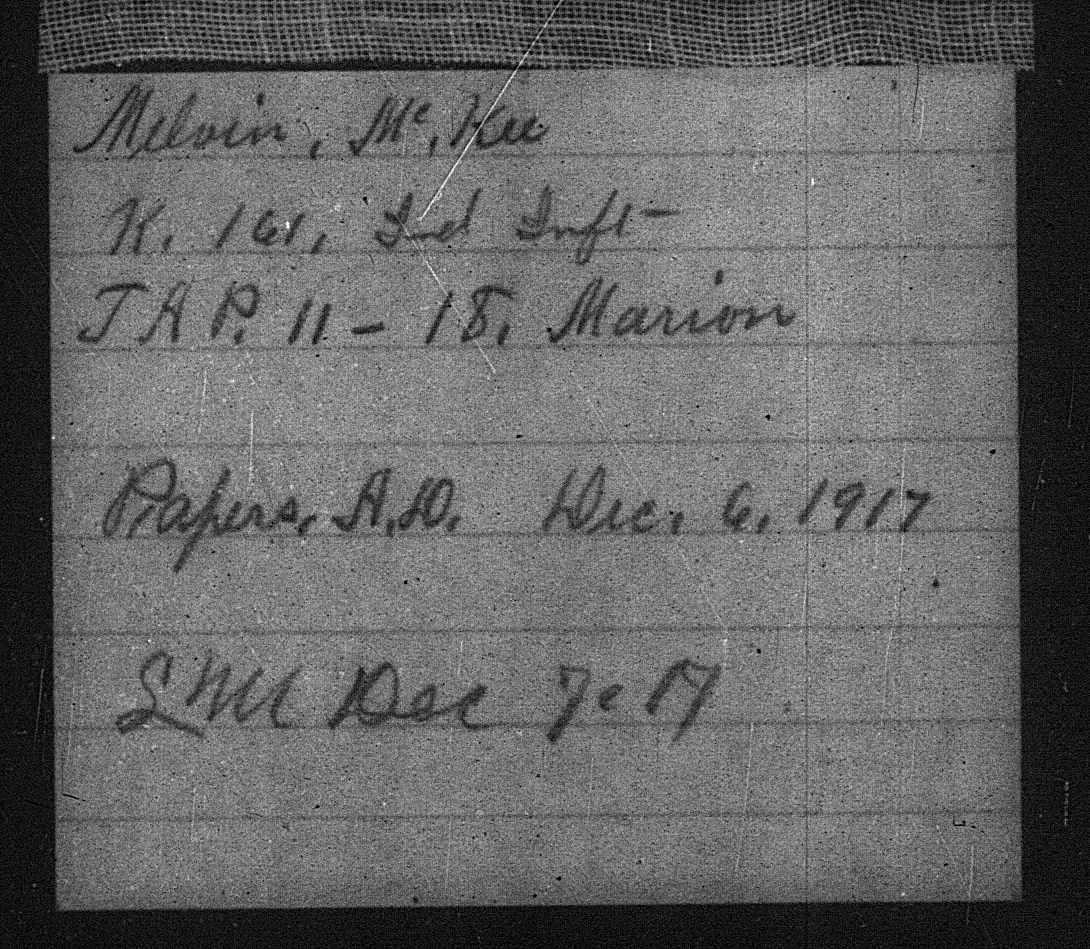 Melvin, Mc.Kee
K. 161, Ind Inft
T A P. 11 - 18, Marion
Papers, A.D. Dec. 6, 1917
Dec 7 - 17